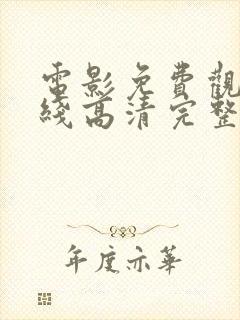 電影免費觀
綫高清完整
年度亦華